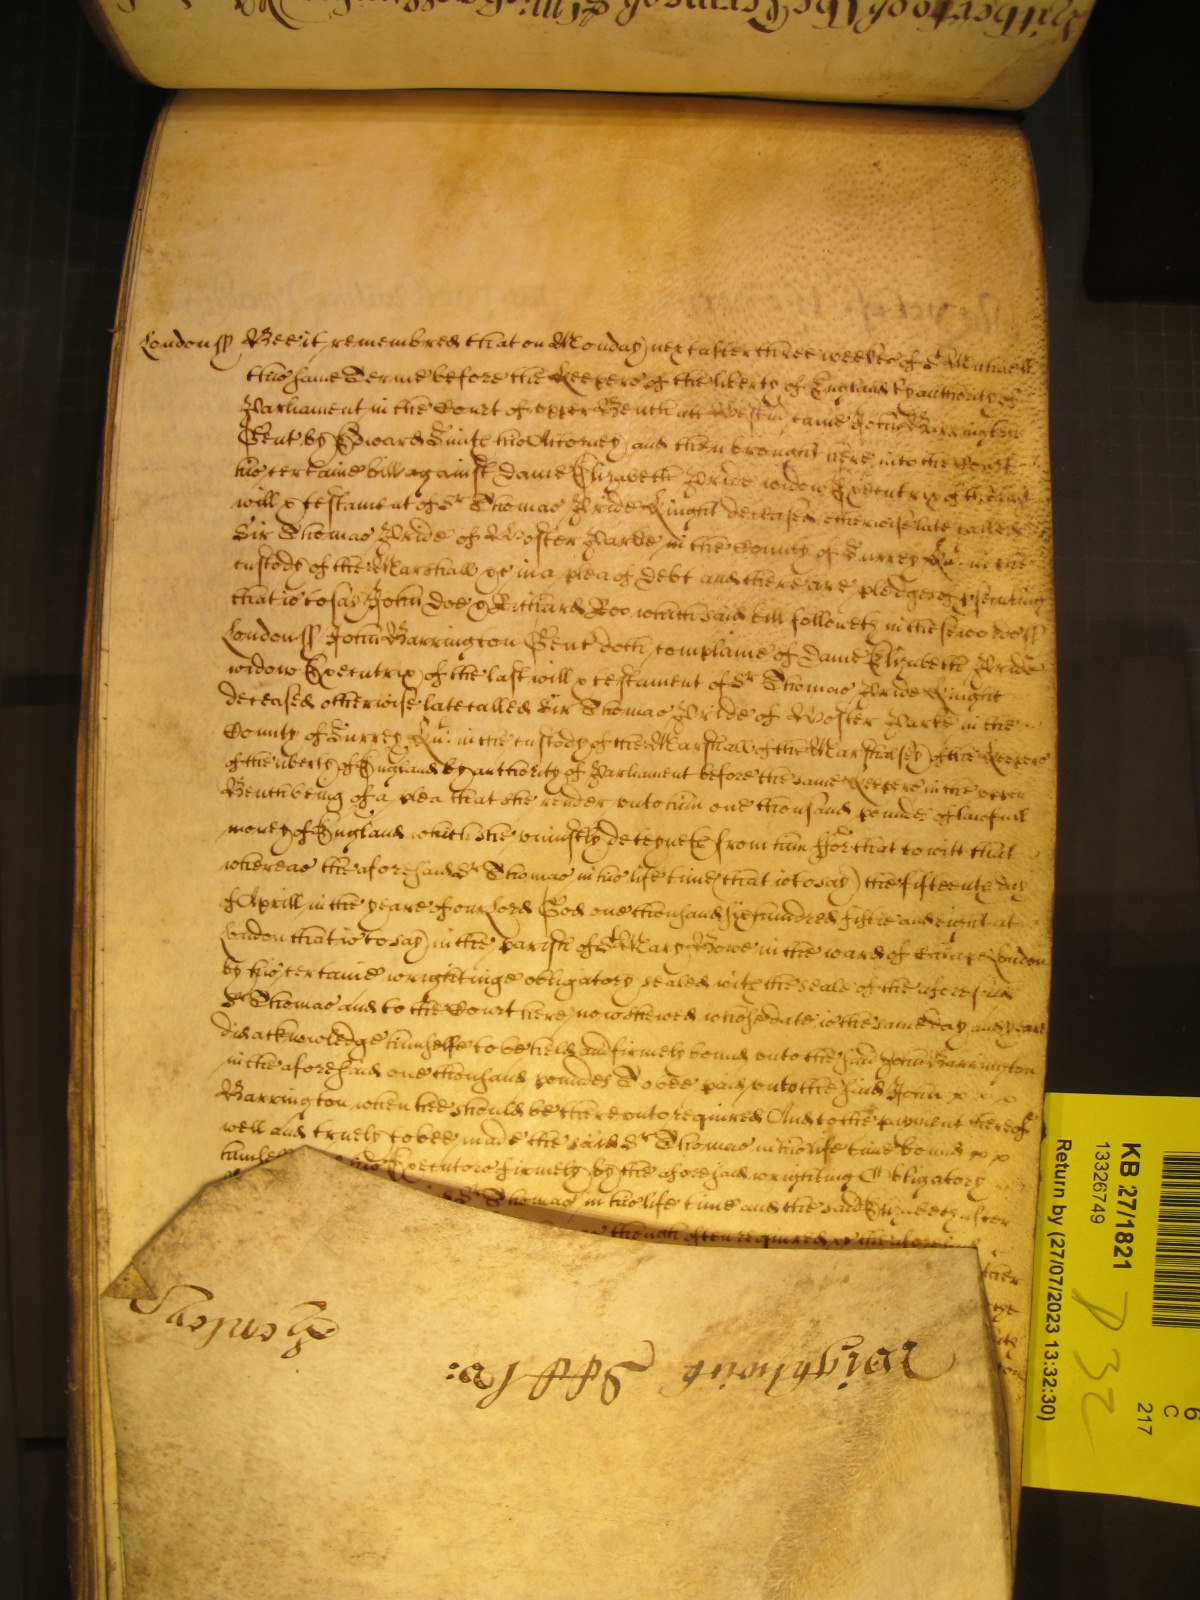 London ss Bee it remembred that on Monday next after three weekes of St Michaell
this same Terme before the Keepers of the liberty of England by authority of
Parliament in the Court of upper Bench att Westm came John Barrington
Gent by Edward Smith his Attorney and then brought here into the Court
his certaine bill against Dame Elizabeth Pride widow Executrix of the last
will & testament of Sr Thomas Pride Knight deceased otherwise late called
Sir Thomas Pride of Woster Parke in the County of Surrey Kt in the
custody of the Marshall &c in a plea of Debt and there are pledges of prsecuting
that is to say John Doe & Richard Roo which said bill followeth in these words ss
London ss John Barrington Gent doth complaine of Dame Elizabeth Pride
widow Executrix of the last will & testament of Sr Thomas Pride Knight
deceased otherwise late called Sir Thomas Pride of Woster Parke in the
County of Surrey Kt in the custody of the Marshall of the Marshalsey of the Keepers
of the liberty of England by authority of Parliament before the same Keepers in the upper
Bench being of a plea that she render unto him one thousand pounds of lawfull
money of England which she uniustly deteyneth from him For that to witt that
whereas the aforesaid Sr Thomas in his life time (that is to say) the fifteenth day
of Aprill in the yeare of our Lord God one thousand six hundred fiftie and eight at
London that is to say in the parish of St Mary Bowe in the ward of Cheap London
by his certaine wrightinge obligatory sealed with the seale of the aforesaid
Sr Thomas and to the Court here now shewed whose date is the same day and yeare
did acknowledge himselfe to be held and firmely bound unto the said John Barrington
in the aforesaid one thousand pounds To bee paid unto the said John x x x
Barrington when hee should be thereunto required And to the payment thereof
well and truely to bee made the said Sr Thomas in his life time bound x x
his Executors firmely by the aforesaid wrighting Obligatory
Sr Thomas in his life time and the said Elizabeth after
though often required
Wightwick
KB 27/1821
13326749
Return by (27/07/2023 13:32:30)
P 32
6
C
217